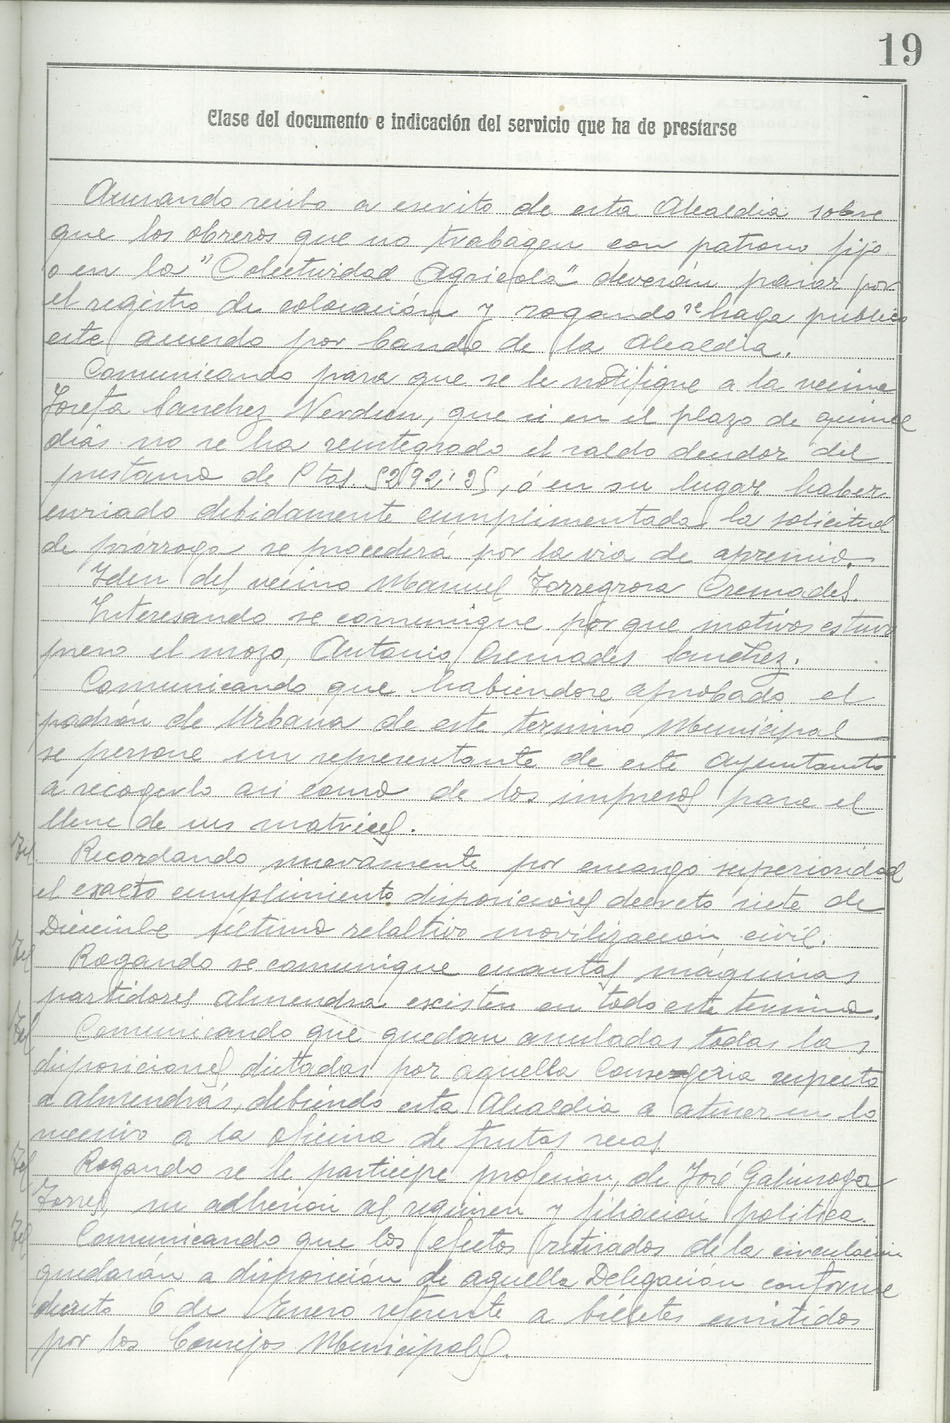 19
Clase del documento e indicación del servicio que ha de prestarse
Acusando recibo a escrito de esta Alcaldia sobre
que los obreros que no trabagen con patrono fijo
o en la "Colectividad Agricola" deverán pasar por
el registro de colocación y rogando se haga publico
este acuerdo por bando de la Alcaldia.
Comunicando para que se le notifique a la vecina
Josefa Sanchez Verdieu, que si en el plazo de quince
dias no se ha reintegrado el saldo deudor del
prestamo de Ptas. 5292,'25, ó en su lugar haber
enviado debidamente cumplimentada la solicitud
de prórroga se procederá por la via de apremio.
Idem del vecino Manuel Torregrosa Cremades.
Interesando se comunique por que motivos estuvo
preso el mozo, Antonio Cremades Sanchez.
Comunicando que habiendose aprobado el
padrón de Urbana de este termino Municipal
se persone un representante de este Ayuntamto
a recogerlo asi como de los impresos para el
llene de sus matrices.
Tel Recordando nuevamente por encargo superioridad
el exacto cumplimiento disposiciones decreto siete de
Diciembe último relaltivo movilización civil.
Tel Rogando se comunique cuantas máquinas
partidores almendra existen en todo este termino.
Tel Comunicando que quedan anuladas todas las
disposiciones dictadas por aquella Consegeria respecto
a almendrás, debiendo esta Alcaldia a atener en lo
necesivo a la oficina de frutas secas
Tel Rogando se le participe profesion, de José Galiensoga
Torres, su adhesion al regimen y filiación politica.
Tel Comunicando que los efectos retirados de la circulación
quedarán a disposición de aquella Delegación conforme
decreto 6 de Enero referente a billetes emitidos
por los Consejos Municipales.